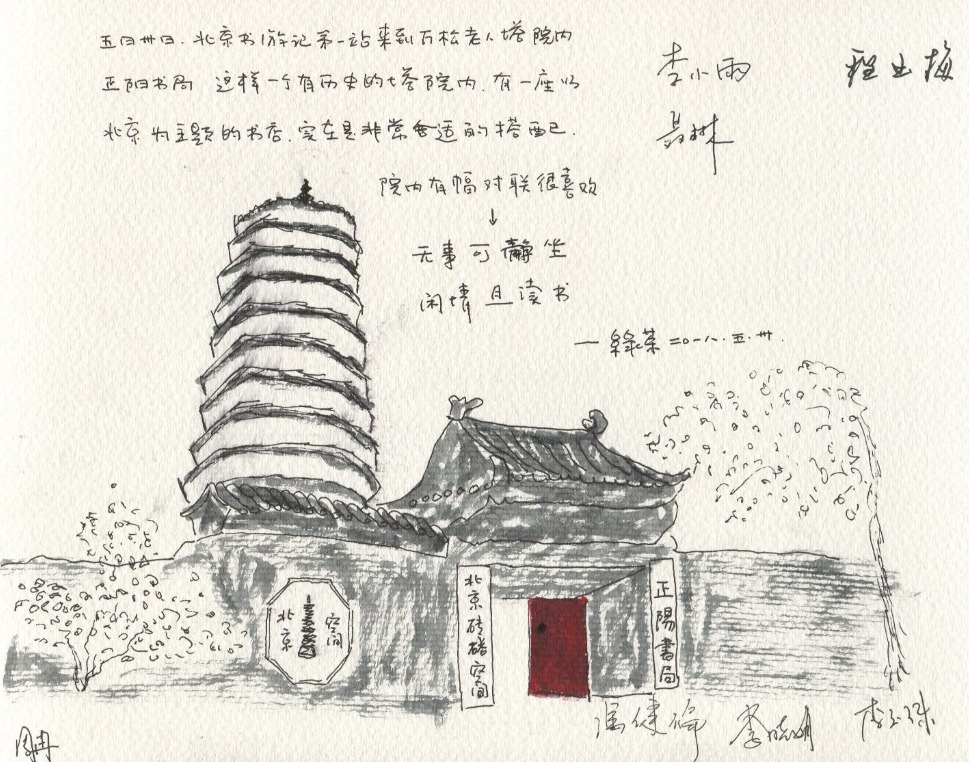 五月卅日.北京书游记第一站来到万松老人塔院内
正阳书局 这样一个有历史的塔院内.有一座以
北京为主题的书店.实在是非常合适的搭配.
李小雨
聂琳
院内有幅对联很喜欢
↓
无事可靜坐
闲情且读书
一綠茶二〇一八.五.卅.
北京 空间
北京砖塔空间
正陽書局
李晓明